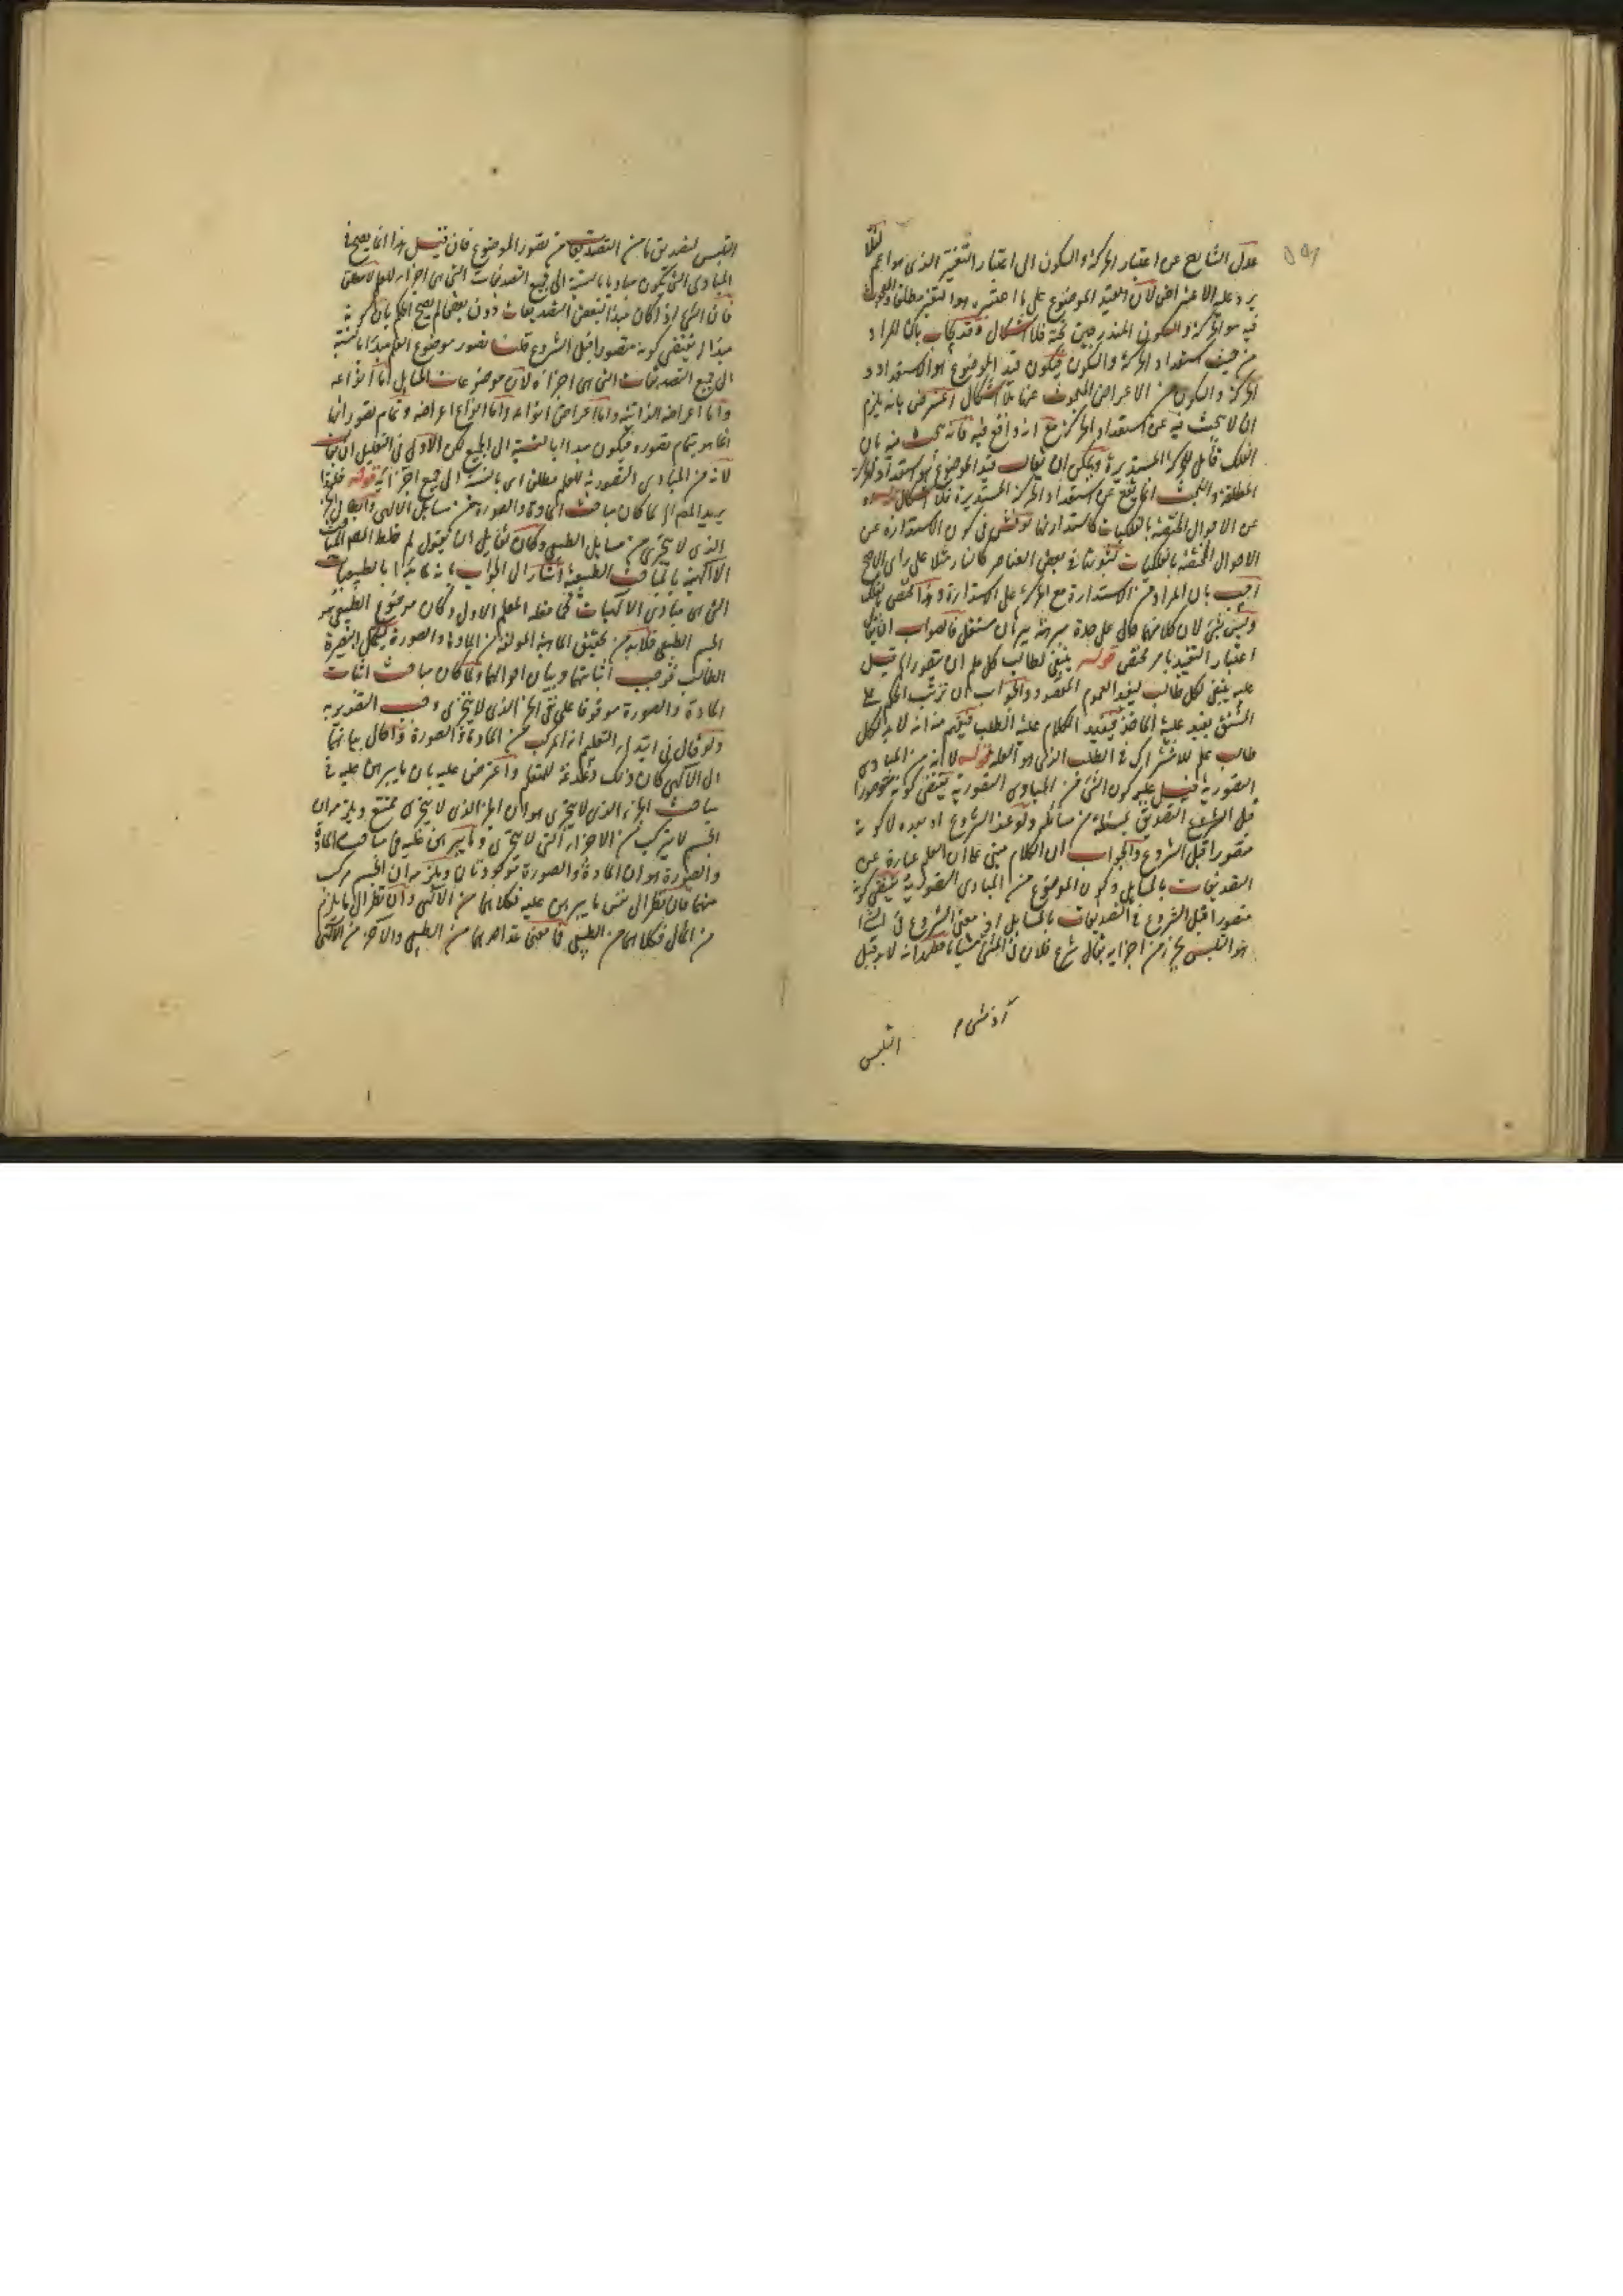 عدل الشارح عن اعتبار الحركة والسكون الى اعتبار التغير الذى هو اعم لئلا
يرد عليه الاعتراض لان القيد الموضوع على ما اعتبره هو التغير مطلقا والمبحوث
فيه هو الحركة والسكون المندرجين تحته فلا اشكال وقد يجاب بان المراد
من حيث استعداد الحركة والسكون فيكون قيد الموضوع هو الاستعداد و
الحركة والسكون من الاعراض المبحوث عنها فلا اشكال اعترض بانه يلزم
ان لا يبحث فيه عن استعداد الحركة مع انه واقع فيه فانه يبحث فيه بان
الفلك قابل للحركة المستديرة ويمكن ان يقال قيد الموضوع هو استعداد الحركة
المطلقة والبحث انما يقع عن استعداد الحركة المستديرة فلا اشكال
عن الاحوال المختصة بالفلكيات كاستدارتها نوقش فى كون الاستدارة عن
الاحوال المختصة بالفلكيات لثبوتها فى بعض العناصر كالنار مثلا على راى الاصح
اجيب بان المراد من الاستدارة مع الحركة على الاستدارة وهذا مختص بالفلك
وليس بشئ لان كلا منهما حال على حدة مبرهنة ببرهان مستقل فالصواب ان يقال
اعتبار التقييد بامر مختص قوله ينبغى لطالب كل علم ان يتصور الخ قيل
عليه ينبغى لكل طالب ليفيد العموم المقصود والجواب ان ترتب الحكم على
المشتق يفيد علية الماخذ فيفيد الكلام علية الطلب فيفهم منه انه لا بد لكل
طالب علم للاشتراك فى الطلب الذى هو العلة قوله لانه من المبادى
التصورية قيل عليه كون الشئ من المبادى التصورية يقتضى كونه متصورا
قبل الشروع التصديق بمسئلة من مسائله ولو عند الشروع او بعده لا كونه
متصورا قبل الشروع والجواب ان الكلام مبنى على ان العلم عبارة عن
التصديقات بالمسايل وكون الموضوع من المبادى التصورية يقتضى كونه
متصورا قبل الشروع فى التصديقات بالمسايل اذ معنى الشروع فى الشئ
هو التلبس بجزء من اجزايه يقال شرع فلان فى المشى
التلبس
التلبس بتصديق ما من التصديقات من تصور الموضوع فان قيل هذا انما يصح فى
المبادى التى تكون مباديا بالنسبة الى جميع التصديقات التى هى اجزاء للعلم لا مطلقا
فان الشئ اذا كان مبدا لبعض التصديقات دون بعض لم يصح الحكم بان كونه
مبدا له يقتضى كونه متصورا قبل الشروع قلنا تصور موضوع العلم مبدا بالنسبة
الى جميع التصديقات التى هى اجزاؤه لان موضوعات المسايل اما انواعه
واما اعراضه الذاتية واما اعراض انواعه واما انواع اعراضه وتمام تصوراتها
انما هو بتمام تصوره فيكون مبدا بالنسبة الى الجميع لكن الاولى فى التعليل ان يقال
لانه من المبادى التصورية للعلم مطلقا اى بالنسبة الى جميع اجزائه قوله فلهذا
يريد المص الخ لما كان مباحث المادة والصورة من مسايل الالهى وابطال الجزء
الذى لا يتجزى من مسايل الطبيعى وكان لقايل ان يقول لم خلط المص المباحث
الالهية بالمباحث الطبيعية اشار الى الجواب بانه لما بدا بالطبيعيات
التى هى مبادى الالهيات كما فعله المعلم الاول وكان موضوع الطبيعى هو
الجسم الطبيعى فلا بد من تحقيق الماهية المولفة من المادة والصورة ليتكمل بصيرة
الطالب فوجب اثباتهما وبيان احوالهما ولما كان مباحث اثبات
المادة والصورة موقوفا على نفى الجزء الذى لا يتجزى وجب التصدير به
ولو قال فى ابتداء التعليم انه مركب من المادة والصورة واحال بيانهما
الى الالهى كان ذلك دغدغة للمتعلم واعترض عليه بان ما يبرهن عليه فى
مباحث الجزء الذى لا يتجزى هو ان الجزء الذى لا يتجزى ممتنع ويلزم ان
الجسم لا يتركب من الاجزاء التى لا تتجزى وما يبرهن عليه فى مباحث المادة
والصورة هو ان المادة والصورة موجودتان ويلزم ان الجسم مركب
منهما فان نظر الى نفس ما يبرهن عليه فكلاهما من الالهى وان نظر الى ما يلزم
من المآل فكلاهما من الطبيعى فما معنى عد احدهما من الطبيعى والاخر من الالهى